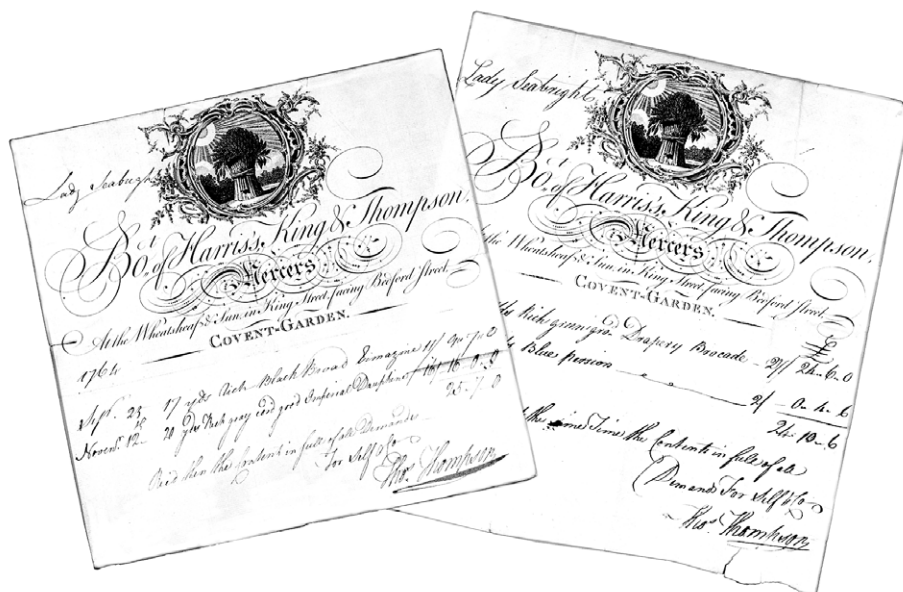 Lady Seabright
Bo.t of Harris's, King & Thompson,
Mercers
At the Wheatsheaf & Sun, in King Street, facing Bedford Street,
COVENT-GARDEN.
1764
Sept. 25 17 yds Rich Black Broad 11/ 9 7 0
Novem. 12 20 yds Rich gray Imperial 16/ 16 0 0
25 7 0
Paid then the Contents in full of all Demands
For Self & Co
Thos. Thompson
Lady Seabright
Bo.t of Harris's, King & Thompson,
Mercers
the Wheatsheaf & Sun, in King Street, facing Bedford Street,
COVENT-GARDEN.
£
Rich Drapery Brocade 24 6 0
Blue persian 2/ 0 4 6
24 10 6
the Time the Contents in full of all
Demands For Self & Co
Thos. Thompson